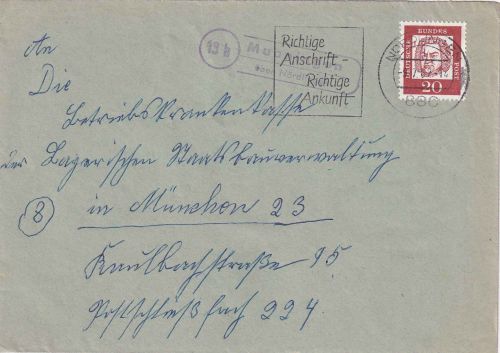 An
Die
Betriebskrankenkasse
der Bayerischen Staatsbauverwaltung
(8) in München 23
Kaulbachstraße 95
Postschließfach 224.
13b
über Nördl
Richtige
Anschrift
Richtige
Ankunft
886
DEUTSCHE
BUNDES
POST
20